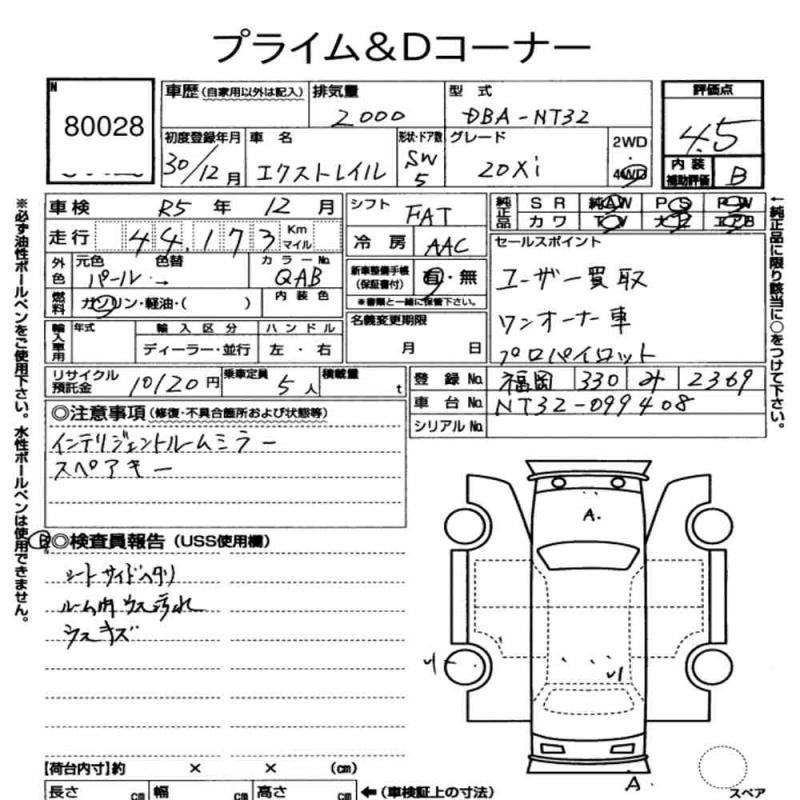 プライム&Dコーナー
N
80028
車歴 (自家用以外は記入) 排気量 型式 評価点
2000 DBA-NT32 4.5
初度登録年月 車名 形状・ドア数 グレード 2WD
30/12月 エクストレイル SW 5 20Xi 4WD
内装補助評価 B
車検 R5年 12月 シフト FAT 純正品 SR 純AW PS PW
カワ TV 大 エアB
走行 44,173 Km マイル 冷房 AAC セールスポイント
外色 元色 色替 カラーNo. 新車整備手帳 (保証書付) 有・無
パール → QAB ユーザー買取
燃料 ガソリン・軽油・( ) 内装色 ※書類と一緒に保管下さい。
輸入車用 年式 輸入区分 ハンドル 名義変更期限 ワンオーナー車
ディーラー・並行 左・右 月 日 プロパイロット
リサイクル預託金 10120円 乗車定員 5人 積載量 t 登録No. 福岡 330 み 2369
車台No. NT32-099408
シリアルNo.
◎注意事項 (修復・不具合箇所および状態等)
インテリジェントルームミラー
スペアキー
B
◎検査員報告 (USS使用欄)
シートサイドヘタリ
ルーム内ウス汚れ
ウスキズ
A.
U1
A
スペア
【荷台内寸】約 × × (cm)
長さ cm 幅 cm 高さ cm ←(車検証上の寸法)
※必ず油性ボールペンをご使用下さい。水性ボールペンは使用できません。
←純正品に限り該当に○をつけて下さい。